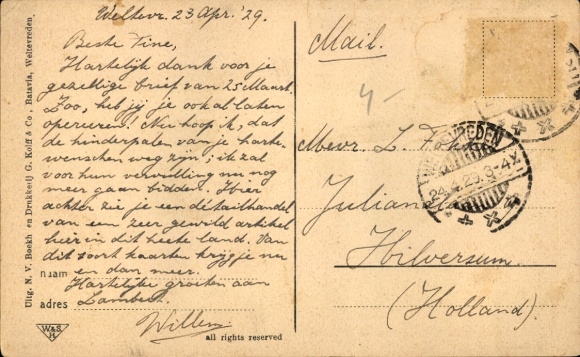 Weltevr. 23 Apr. '29.
Beste Tine,
Hartelijk dank voor je
gezellige brief van 25 Maart.
Zoo, heb jij je ook al laten
opereeren! Nu hoop ik, dat
de hinderpalen van je harte-
wenschen weg zijn; ik zal
voor hun vervulling nu nog
meer gaan bidden. Hier-
achter zie je een détailhandel
van een zeer gewild artikel
hier in dit heete land. Van
dit soort kaarten krijg je nu
en dan meer.
naam
Hartelijke groeten aan
adres Lambert.
Willem
all rights reserved
Uitg. N. V. Boekh en Drukkerij G. Kolff & Co, Batavia, Weltevreden.
W&S
H
Mail.
4-
Mevr. L.
Juliana
Hilversum
(Holland)
WELTEVREDEN
24.4.29.3-4V